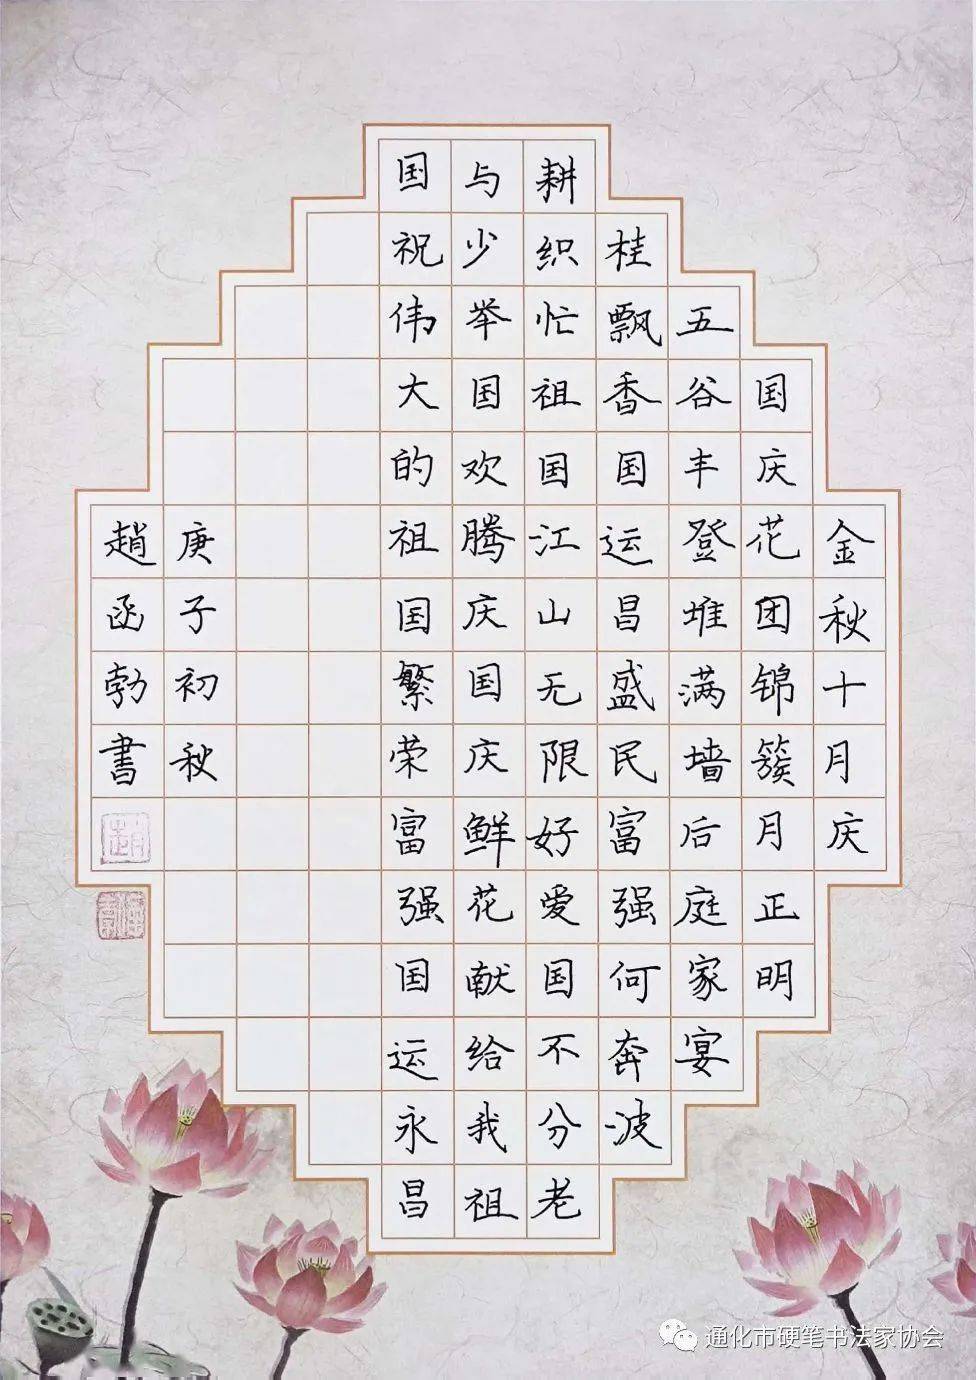 金秋十月庆
国庆花团锦簇月正明
五谷丰登堆满墙后庭家宴
桂飘香国运昌盛民富强何奔波
耕织忙祖国江山无限好爱国不分老
与少举国欢腾庆国庆鲜花献给我祖
国祝伟大的祖国繁荣富强国运永昌
庚子初秋
趙函勃書
通化市硬笔书法家协会